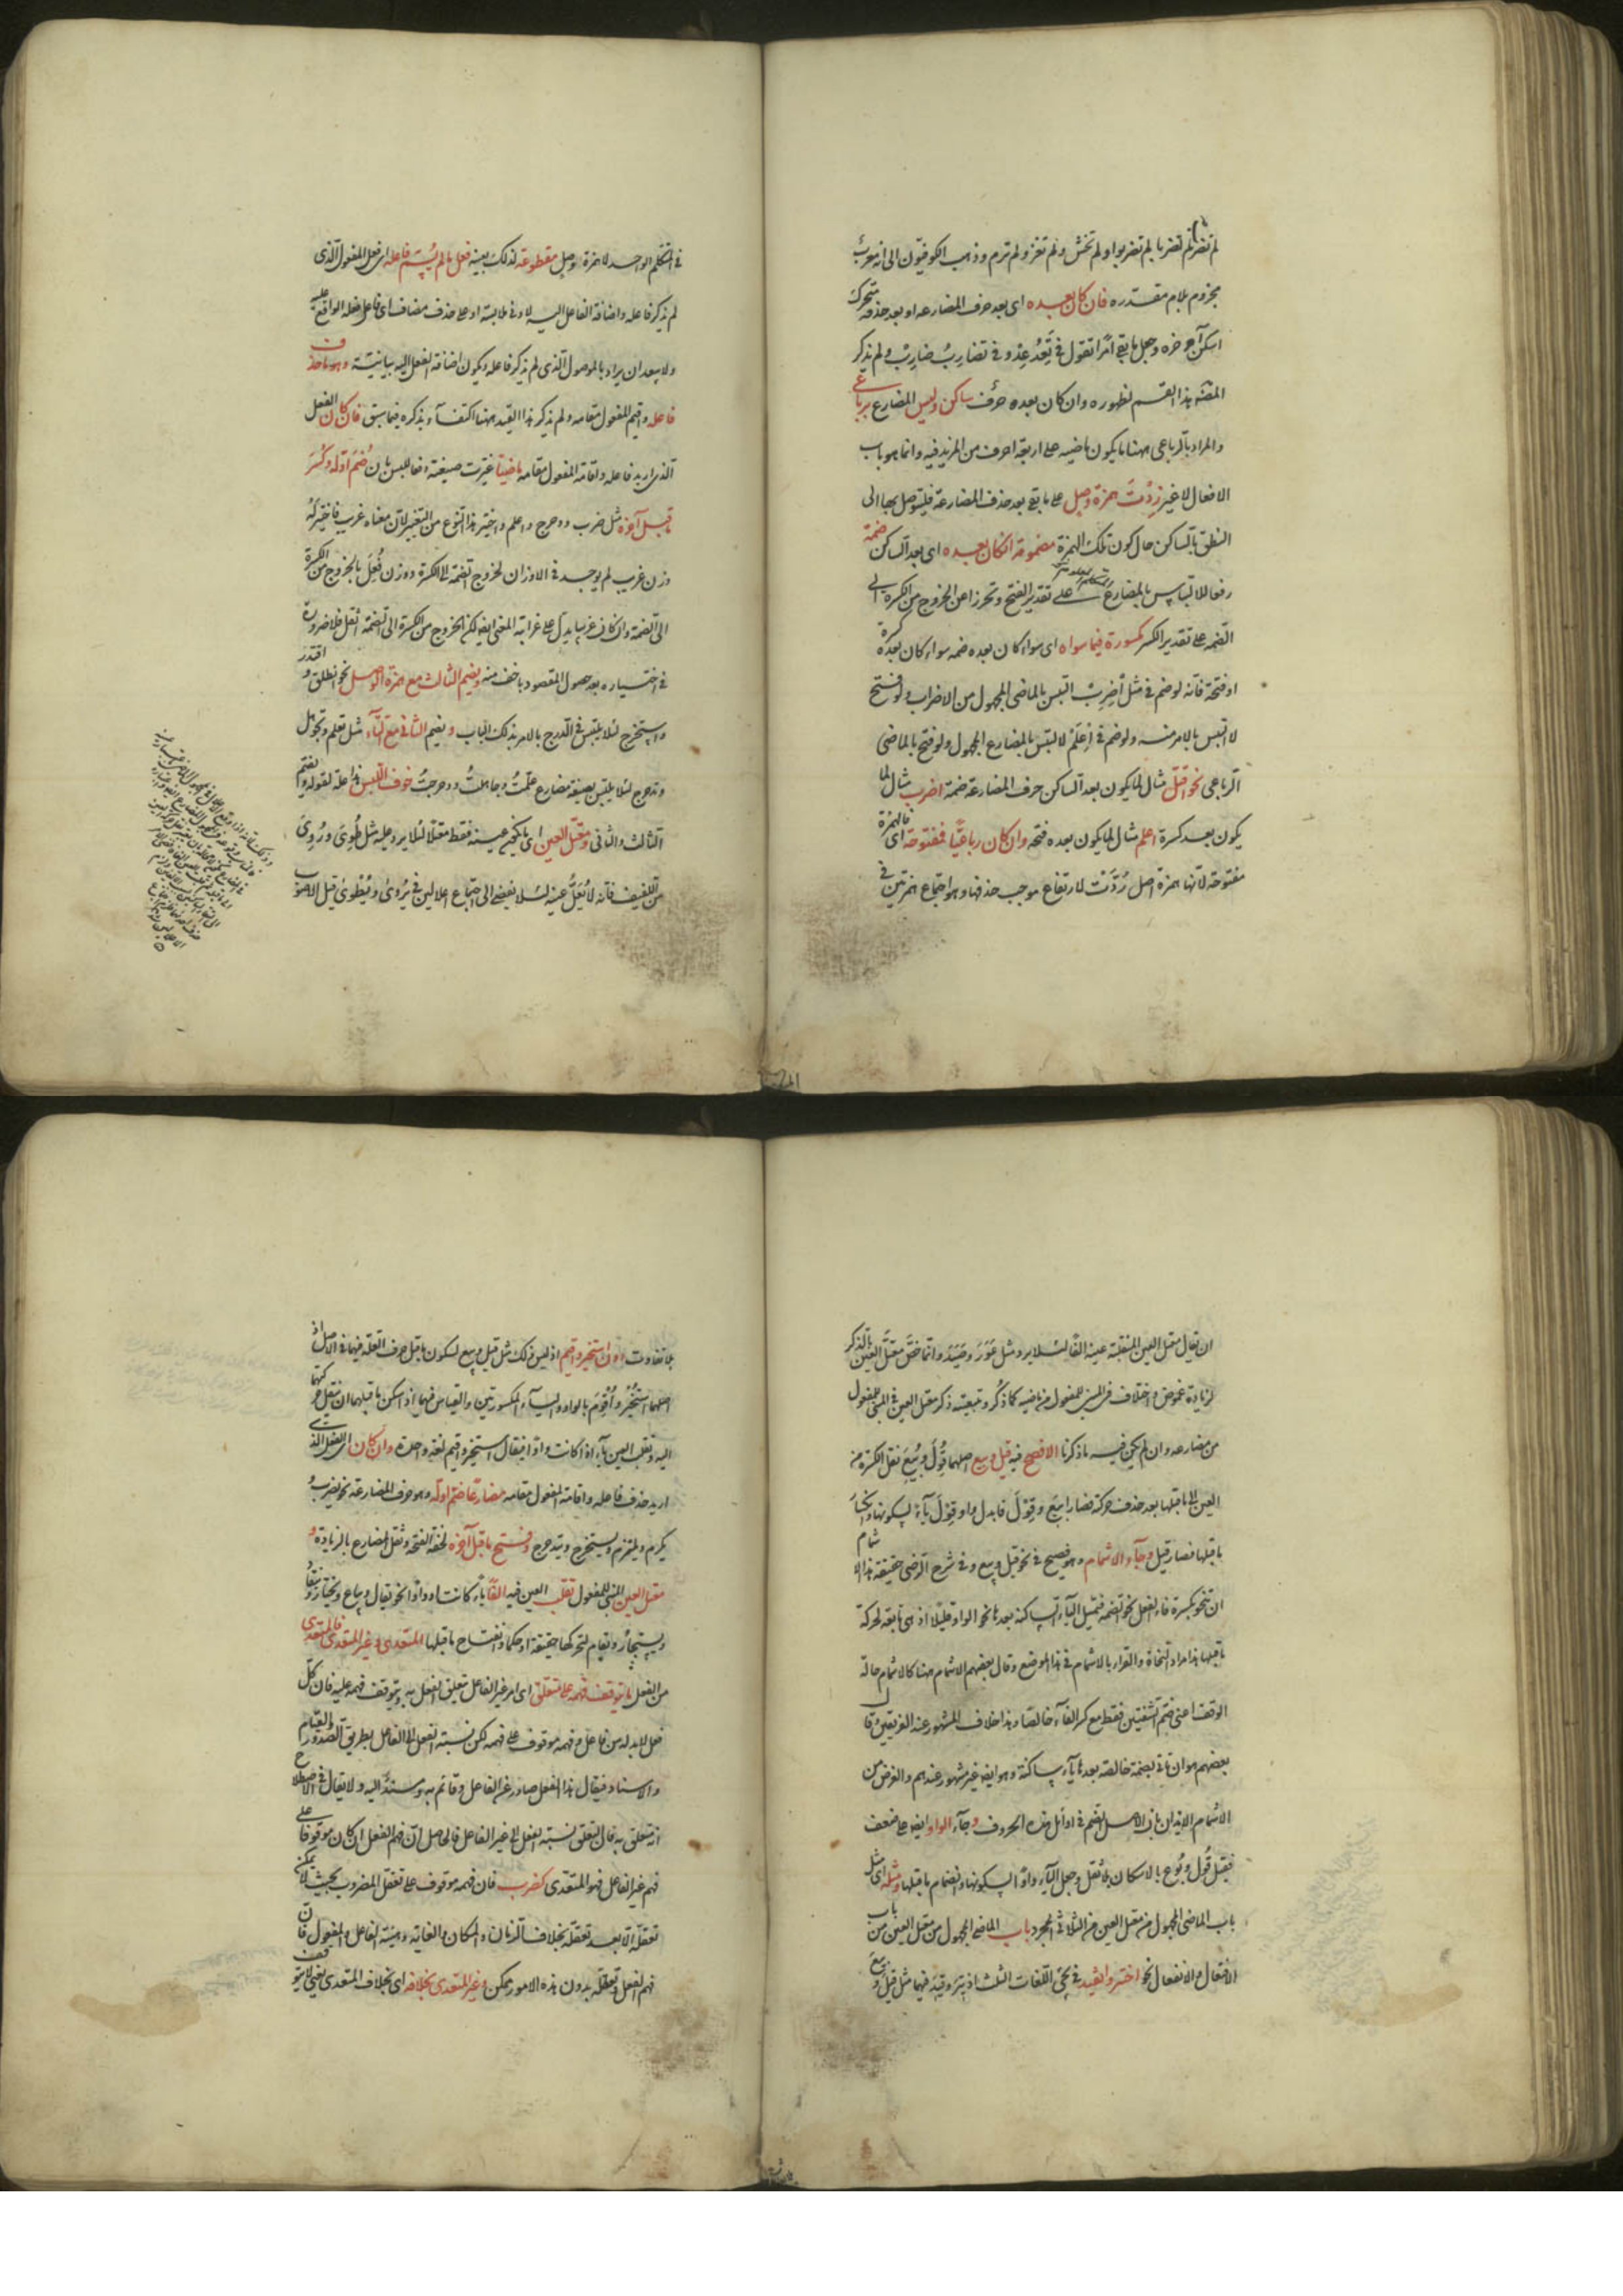 لم تضربا لم تضربوا ولم تخش ولم تغز ولم ترم وذهب الكوفيون الى انه معرب
مجزوم بلام مقدره فان كان بعده اى بعد حرف المضارعه او بعد حذفه متحرك
اسكن آخره وجعل ما بقى امرا تقول فى تعد عد وفى تضارب ضارب ولم يذكر
المصنف هذا القسم لظهوره وان كان بعده حرف ساكن وليس المضارع برباعى
والمراد بالرباعى ههنا ما يكون ماضيه على اربعة احرف من المزيد فيه وانما هو باب
الافعال لا غير زدت همزة وصل على ما بقى بعد حذف المضارعة فليتوصل بها الى
النطق بالساكن حال كون تلك الهمزة مضمومة ان كان بعده اى بعد الساكن ضمة
رفعا للالتباس بالمضارع على تقدير الفتح وتحرزا عن الخروج من الكسرة الى
الضمه على تقدير الكسر مكسورة فيما سواه اى سواء كان بعده ضمه سواء كان بعده كسرة
او فتحة فانه لو ضم فى مثل اضرب التبس بالماضى المجهول من الاضراب ولو فتح
لا التبس بالامر منه ولو ضم فى اعلم لالتبس بالمضارع المجهول ولو فتح بالماضى
الرباعى نحو اقتل مثال لما يكون بعد الساكن حرف المضارعة ضمة اضرب مثال لما
يكون بعد كسرة اعلم مثال لما يكون بعده فتحه وان كان رباعيا فمفتوحة اى فالهمزة
مفتوحة لانها همزة اصل ردت لارتفاع موجب حذفها وهو اجتماع همزتين فى
فى المتكلم الواحد لا همزة وصل مقطوعة كذلك بعينه فعل ما لم يسم فاعله اى فعل المفعول الذى
لم يذكر فاعله واضافة الفاعل اليه لادنى ملابسة او على حذف مضاف اى فاعل فعله الواقع عليه
ولا يبعد ان يراد بالموصول الذى لم يذكر فاعله ويكون اضافة الفعل اليه بيانية وهو ما حذف
فاعله واقيم المفعول مقامه ولم يذكر هذا القيد ههنا اكتفاء بذكره فيما سبق فان كان الفعل
الذى اريد فاعله واقامة المفعول مقامه ماضيا غيرت صيغته دفعا للبس بان ضم اوله وكسر
ما قبل آخره مثل ضرب ودحرج واعلم واختير هذا النوع من التغيير لان معناه غريب فاختير له
وزن غريب لم يوجد فى الاوزان لخروج الضمة الى الكسرة ووزن فعل بالخروج من الكسرة
الى الضمة وان كان غريبا يدل على غرابة المعنى ايضا لكن الخروج من الكسرة الى الضمة اثقل فلا ضرورة
فى اختياره بعد حصول المقصود باخف منه ويضم الثالث مع همزة الوصل نحو انطلق واقتدر
واستخرج لئلا يلتبس فى الدرج بالامر بذلك الباب ويضم الثانى مع التاء مثل تعلم وتجوهل
وتدحرج لئلا يلتبس بصيغة مضارع علمت وجاهلت ودحرجت خوف اللبس هذا علة لقوله ويضم
الثالث والثانى ومعتل العين اى ما يكون عينه فقط معتلا لئلا يرد عليه مثل طوى وروى
من اللفيف فانه لا يعل عينه لئلا يفضى الى اجتماع اعلالين فى يروى ويطوى قيل الاصوب
ان يقال معتل العين المنقلبة عينه الفا لئلا يرد مثل عور وصيد وانما خص معتل العين بالذكر
لزيادة غموض واختلاف فى المبنى للمفعول من ماضيه كما ذكر وتبعيته ذكر معتل العين فى المبنى للمفعول
من مضارعه وان لم يكن فيه ما ذكرنا الافصح فيه قيل وبيع اصلهما قول وبيع نقل الكسرة من
العين الى ما قبلها بعد حذف حركته فصارا بيع وقول فابدل واو قول ياء لسكونها وانكسار
ما قبلها فصار قيل وجاء الاشمام وهو فصيح فى نحو قيل وبيع وفى شرح الرضى حقيقة هذا الاشمام
ان تنحو بكسرة فاء الفعل نحو الضمة فتميل الياء الساكنة بعدها نحو الواو قليلا اذ هى تابعة لحركة
ما قبلها هذا مراد النحاة والقراء بالاشمام فى هذا الموضع وقال بعضهم الاشمام ههنا كالاشمام حالة
الوقف اعنى ضم الشفتين فقط مع كسر الفاء خالصا وهذا خلاف المشهور عند الفريقين قال
بعضهم هو ان تاتى بضمة خالصة بعدها ياء ساكنة وهو ايضا غير مشهور عندهم والغرض من
الاشمام الايذان بان الاصل الضم فى اوائل هذه الحروف وجاء الواو ايضا على ضعف
فقيل قول وبوع بالاسكان بلا نقل وجعل الياء واوا لسكونها وانضمام ما قبلها ومثله اى مثل
باب الماضى المجهول من معتل العين من الثلاثى المجرد باب الماضى المجهول من معتل العين من باب
الافتعال والانفعال نحو اختير وانقيد فى مجئ اللغات الثلث اذ تير وقيد فيهما مثل قيل وبيع
بلا تفاوت دون استخير واقيم اذ ليس ذلك مثل قيل وبيع لسكون ما قبل حرف العله فيهما فى الاصل اذ
اصلهما استخير واقوم بالواو والياء المكسورتين والقياس فيهما اذ اسكن ما قبلهما ان ينقل حركتهما
اليه وتقلب العين ياء اذا كانت واوا فيقال استخير واقيم لغة واحدة وان كان اى الفعل الذى
اريد حذف فاعله واقامة المفعول مقامه مضارعا ضم اوله وهو حرف المضارعة نحو يضرب
يكرم ويلتزم ويستخرج ويتدحرج وفتح ما قبل آخره لخفة الفتحة وثقل المضارع بالزيادة و
معتل العين المبنى للمفعول تقلب العين فيه الفا ياء كانت او واوا نحو يقال ويباع ويختار وينقاد
ويستجار ويقام لتحركها حقيقة او حكما وانفتاح ما قبلها المتعدى وغير المتعدى فالمتعدى
من الفعل ما يتوقف فهمه على متعلق اى امر غير الفاعل متعلق الفعل به ويتوقف فهمه عليه فان كل
فعل لابد له من فاعل وفهمه موقوف على فهمه لكن نسبة الفعل الى الفاعل بطريق الصدور والقيام
والاسناد فيقال هذا الفعل صادر عن الفاعل وقائم به ومسند اليه ولا يقال فى الاصطلاح
انه متعلق به فان التعلق نسبة الفعل الى غير الفاعل فالحاصل ان فهم الفعل ان كان موقوفا على
فهم غير الفاعل فهو المتعدى كضرب فان فهمه موقوف على تعقل المضروب بحيث لا يمكن
تعقله الا بعد تعقله بخلاف الزمان والمكان والغاية وهيئة الفاعل والمفعول فان
فهم الفعل وتعقله بدون هذه الامور ممكن وغير المتعدى بخلافه اى بخلاف المتعدى يعنى لا يتوقف